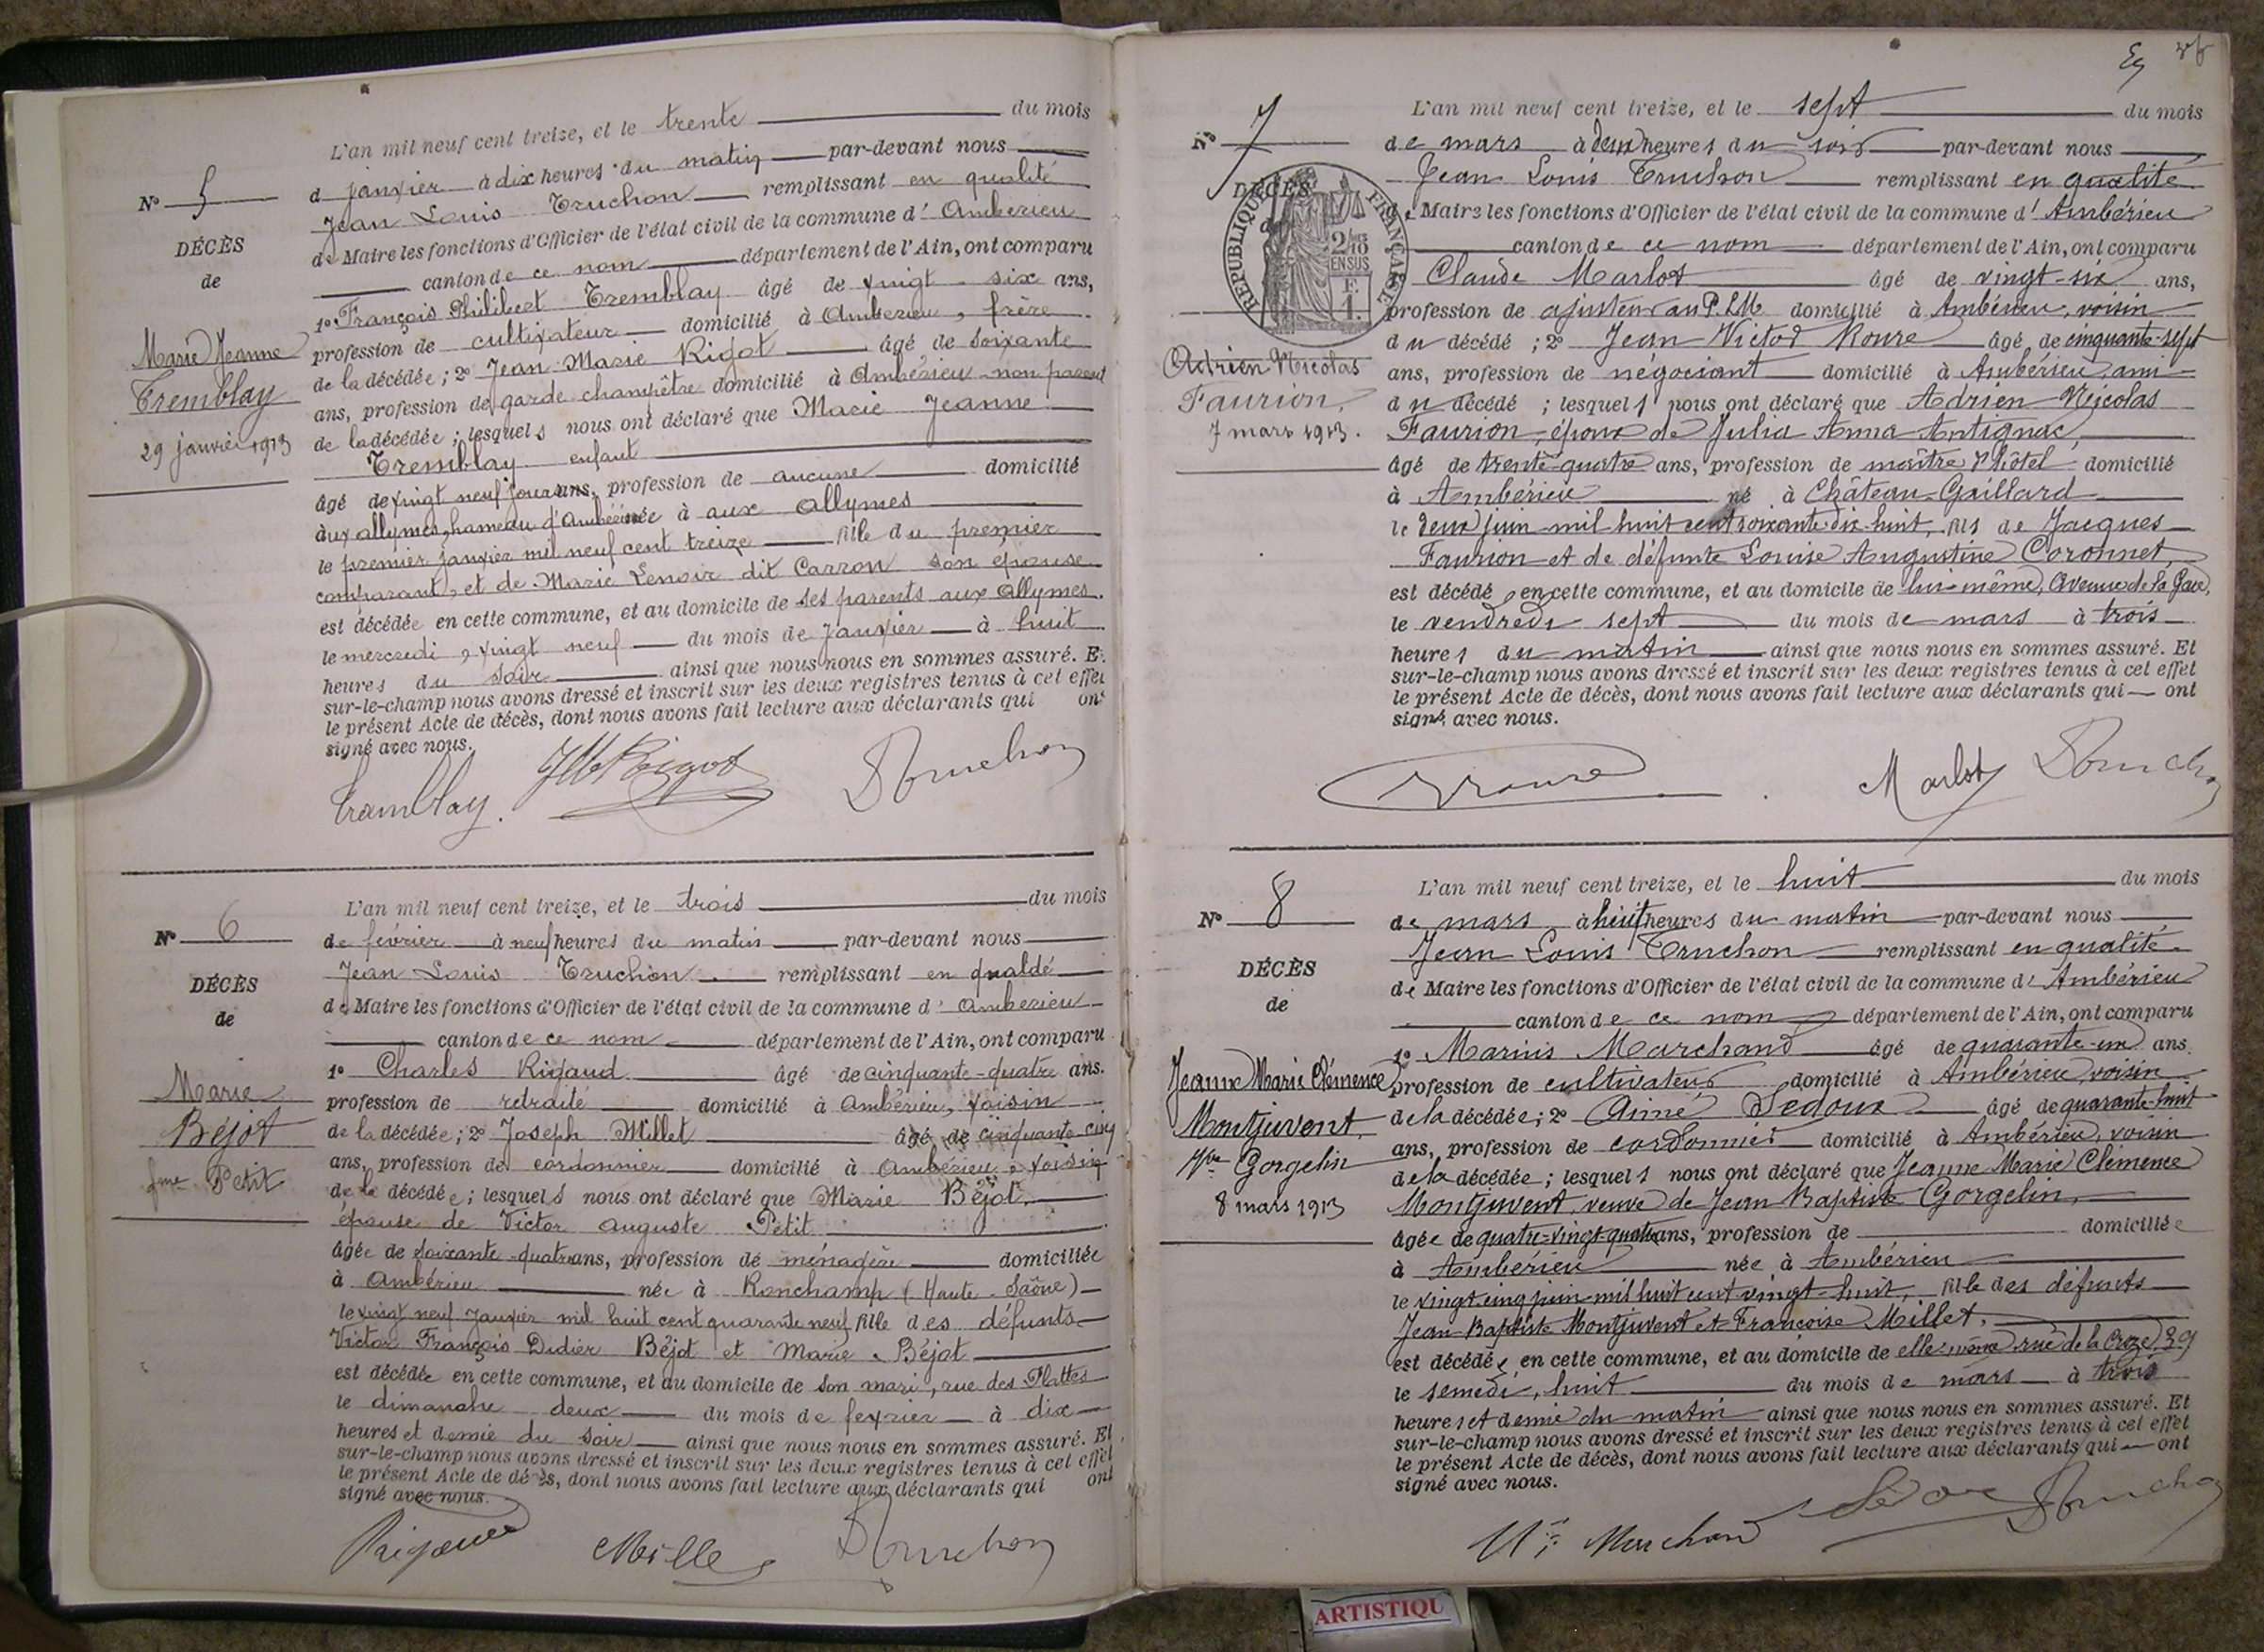 L'an mil neuf cent treize, et le trente du mois
d janvier à dix heures du matin par-devant nous
Jean Louis Truchon remplissant en qualité
de Maire les fonctions d'Officier de l'état civil de la commune d' Ambérieu
canton de ce nom département de l'Ain, ont comparu
1º François Philibert Tremblay âgé de vingt-six ans,
profession de cultivateur domicilié à Ambérieu, frère
de la décédée ; 2º Jean Marie Rigot âgé de soixante
ans, profession de garde champêtre domicilié à Ambérieu non parent
de la décédée ; lesquels nous ont déclaré que Marie Jeanne
Tremblay enfant
âgé de vingt neuf jours ans, profession de aucune domicilié
à aux allymes, hameau d'Ambérieu née à aux allymes
le premier janvier mil neuf cent treize fille du premier
comparant, et de Marie Lenoir dit Carron son épouse
est décédée en cette commune, et au domicile de ses parents aux allymes.
le mercredi, vingt neuf du mois de janvier à huit
heures du soir ainsi que nous nous en sommes assuré. Et
sur-le-champ nous avons dressé et inscrit sur les deux registres tenus à cet effet
le présent Acte de décès, dont nous avons fait lecture aux déclarants qui ont
signé avec nous.
Nº 5
DÉCÈS
de
Marie Jeanne
Tremblay
29 janvier 1913
Tremblay. JM Rigot Truchon
L'an mil neuf cent treize, et le trois du mois
de février à neuf heures du matin par-devant nous
Jean Louis Truchon remplissant en qualité
de Maire les fonctions d'Officier de l'état civil de la commune d' Ambérieu
canton de ce nom département de l'Ain, ont comparu
1º Charles Rigaud âgé de cinquante-quatre ans.
profession de retraité domicilié à Ambérieu, voisin
de la décédée ; 2º Joseph Millet âgé de cinquante cinq
ans, profession de cordonnier domicilié à Ambérieu, voisin
de la décédée ; lesquels nous ont déclaré que Marie Béjot,
épouse de Victor auguste Petit
âgée de soixante-quatre ans, profession de ménagère domiciliée
à Ambérieu née à Ronchamp (Haute-Saône)
le vingt neuf Janvier mil huit cent quarante neuf fille des défunts
Victor François Didier Béjot et Marie Béjot
est décédée en cette commune, et au domicile de son mari, rue des Plattes
le dimanche deux du mois de février à dix
heures et demie du soir ainsi que nous nous en sommes assuré. Et
sur-le-champ nous avons dressé et inscrit sur les deux registres tenus à cet effet
le présent Acte de décès, dont nous avons fait lecture aux déclarants qui ont
signé avec nous.
Nº 6
DÉCÈS
de
Marie
Béjot
fme Petit
Rigaud Millet Truchon
26
L'an mil neuf cent treize, et le sept du mois
de mars à deux heures du soir par-devant nous
Jean Louis Truchon remplissant en qualité
de Maire les fonctions d'Officier de l'état civil de la commune d' Ambérieu
canton de ce nom département de l'Ain, ont comparu
Claude Marlot âgé de vingt-six ans,
profession de ajusteur au P.LM domicilié à Ambérieu, voisin
du décédé ; 2º Jean Victor Roure âgé de cinquante-sept
ans, profession de négociant domicilié à Ambérieu, ami
du décédé ; lesquels nous ont déclaré que Adrien Nicolas
Faurion, époux de Julia Anna Antignac,
âgé de trente-quatre ans, profession de maître d'hôtel domicilié
à Ambérieu né à Château-Gaillard
le deux juin mil huit cent soixante-dix-huit, fils de Jacques
Faurion et de défunte Louise Augustine Coronnet,
est décédé en cette commune, et au domicile de lui-même, Avenue de la Gare,
le vendredi sept du mois de mars à trois
heures du matin ainsi que nous nous en sommes assuré. Et
sur-le-champ nous avons dressé et inscrit sur les deux registres tenus à cet effet
le présent Acte de décès, dont nous avons fait lecture aux déclarants qui ont
signé avec nous.
Nº 7
DÉCÈS
RÉPUBLIQUE FRANÇAISE
2/10 EN SUS
F.
1.
Adrien Nicolas
Faurion,
7 mars 1913.
Roure Marlot Truchon
L'an mil neuf cent treize, et le huit du mois
de mars à huit heures du matin par-devant nous
Jean Louis Truchon remplissant en qualité
de Maire les fonctions d'Officier de l'état civil de la commune d' Ambérieu
canton de ce nom département de l'Ain, ont comparu
1º Marius Marchand âgé de quarante-un ans.
profession de cultivateur domicilié à Ambérieu, voisin
de la décédée ; 2º Aimé Sedoux âgé de quarante-huit
ans, profession de cordonnier domicilié à Ambérieu, voisin
de la décédée ; lesquels nous ont déclaré que Jeanne Marie Clémence
Montjuvent, veuve de Jean Baptiste Gorgelin,
âgée de quatre-vingt-quatre ans, profession de domiciliée
à Ambérieu née à Ambérieu
le vingt-cinq juin mil huit cent vingt-huit, fille des défunts
Jean-Baptiste Montjuvent et Françoise Millet,
est décédée en cette commune, et au domicile de elle-même rue de la Croze, 39
le samedi, huit du mois de mars à trois
heures et demie du matin ainsi que nous nous en sommes assuré. Et
sur-le-champ nous avons dressé et inscrit sur les deux registres tenus à cet effet
le présent Acte de décès, dont nous avons fait lecture aux déclarants qui ont
signé avec nous.
Nº 8
DÉCÈS
de
Jeanne Marie Clémence
Montjuvent,
Vve Gorgelin
8 mars 1913
Marchand Truchon
ARTISTIQU